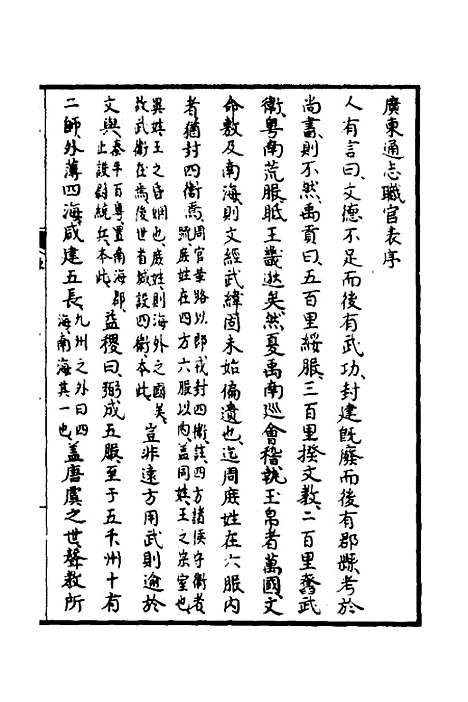 廣東通志職官表序
人有言曰、文德不足而後有武功、封建旣廢而後有郡縣考於
尚書、則不然、禹貢曰、五百里綏服、三百里揆文教、二百里奮武
衛、粵南荒服、眡王畿逖矣、然夏禹南巡會稽執玉帛者萬國、文
命敷及南海、則文經武緯固未始偏遺也、迄周庶姓在六服內
者猶封四衛焉、周官革路以卽戎封四衛註、四方諸侯守衛者、疏庶姓在四方六服以內、蓋同姓、王之宗室也、
異姓、王之昏姻也、庶姓、則海外之國矣、故武衛在焉、後世省城設四衛本此、豈非遠方用武則逾於
文與、秦平百粵置南海郡、止設尉統兵、本此、益稷曰、弼成五服、至于五千、州十有
二師、外薄四海、咸建五長、九州之外曰四海、南海其一也、蓋唐虞之世、聲教所